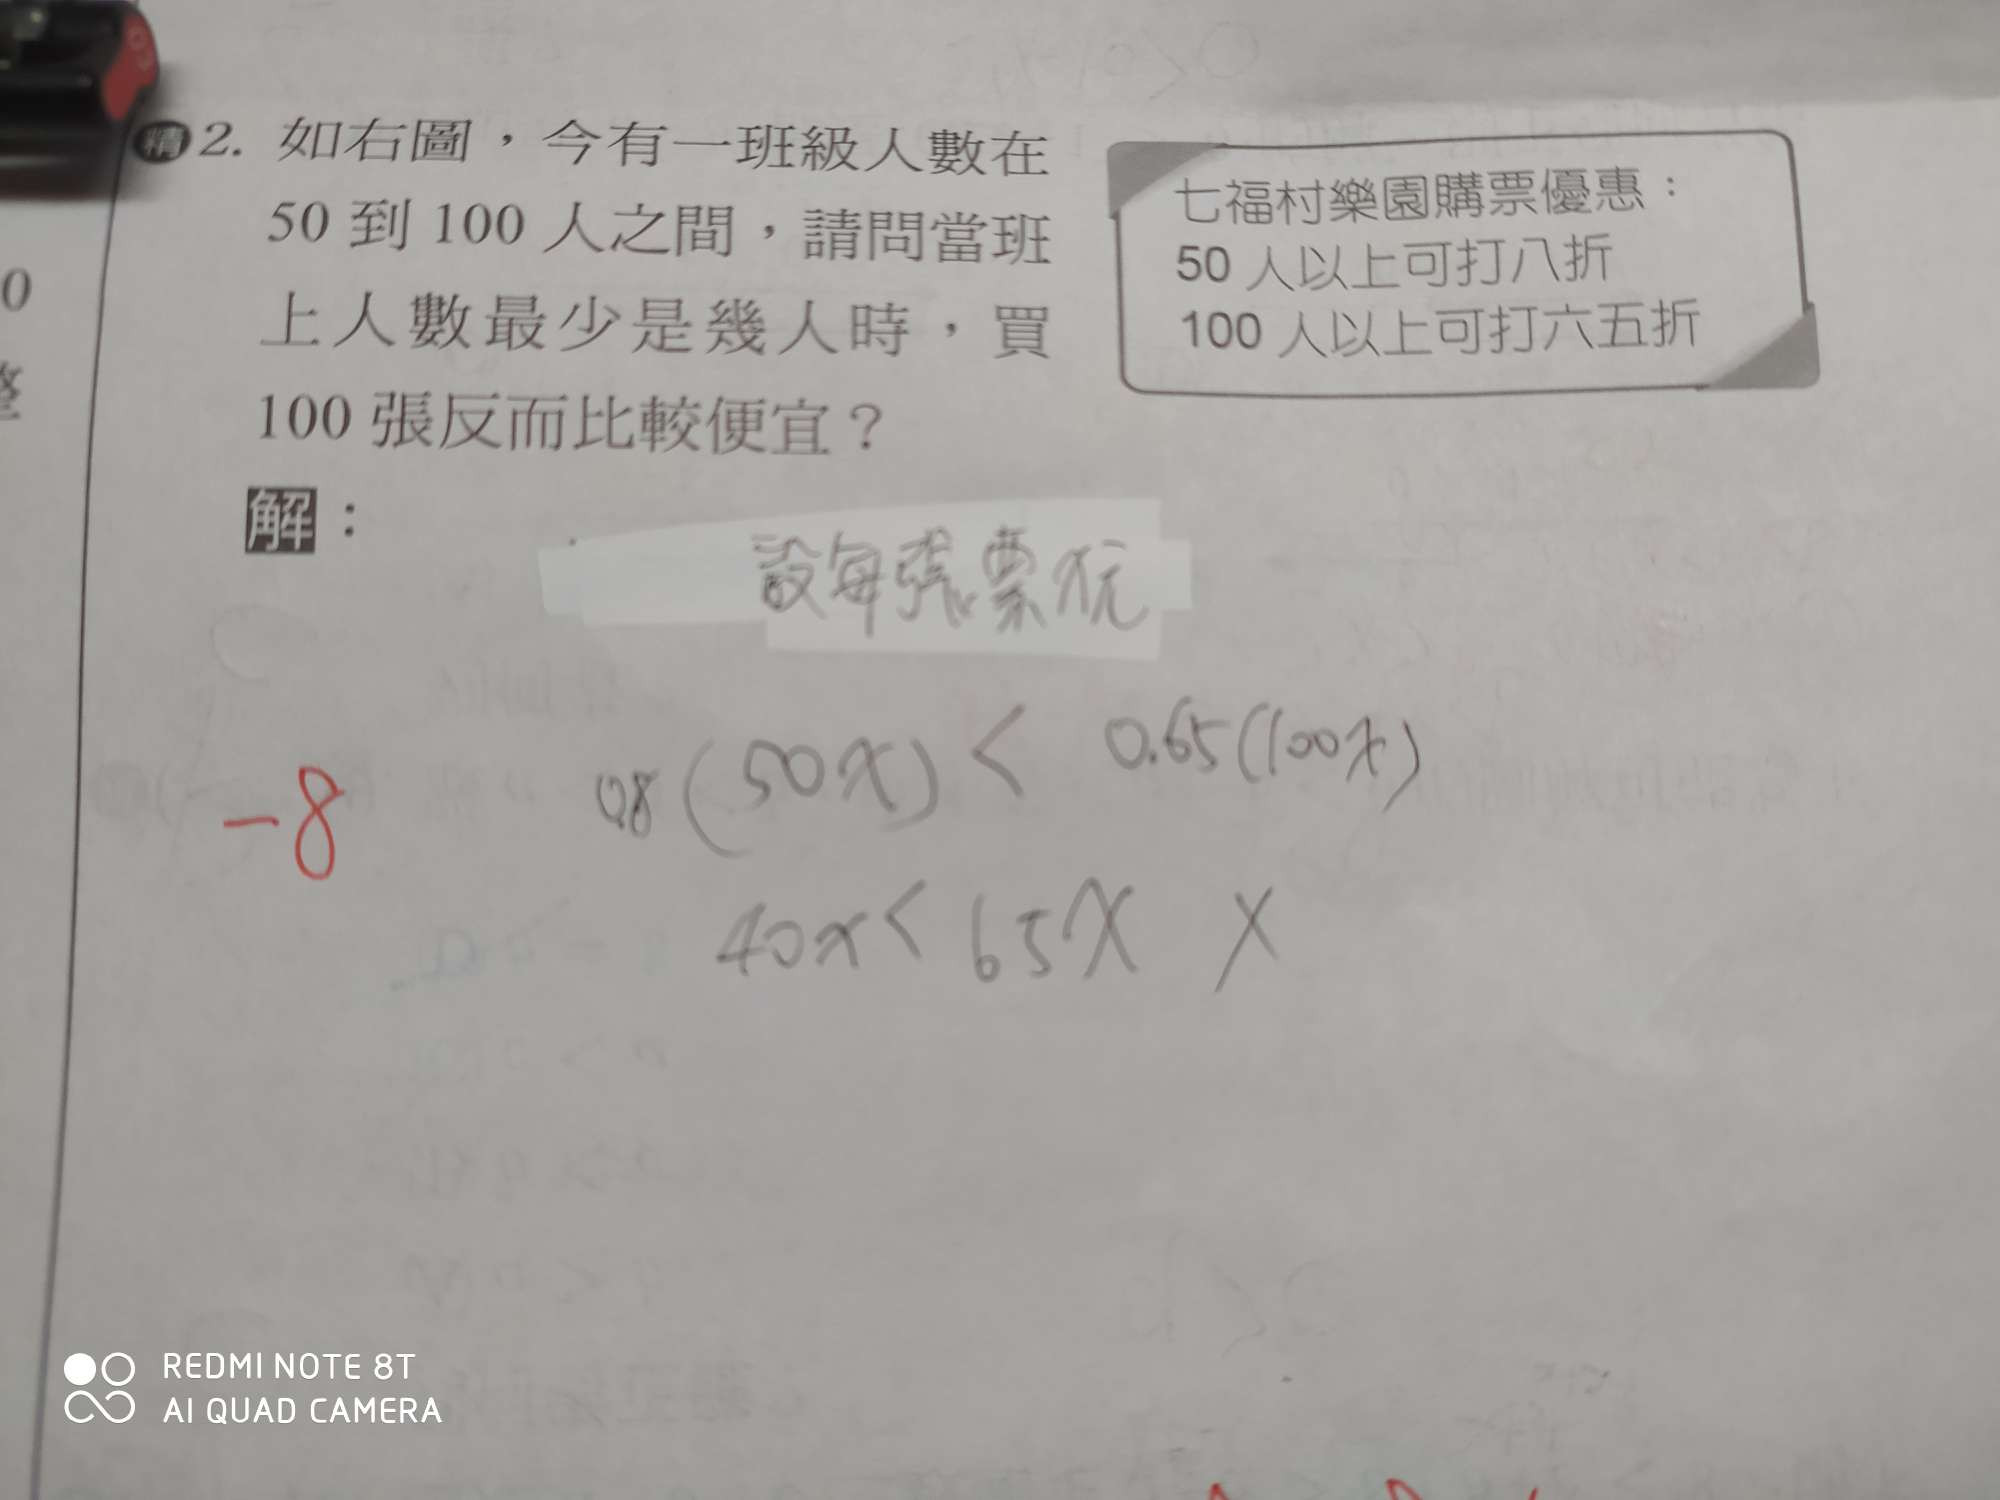 精 2. 如右圖，今有一班級人數在
50 到 100 人之間，請問當班
上人數最少是幾人時，買
100 張反而比較便宜？
七福村樂園購票優惠：
50 人以上可打八折
100 人以上可打六五折
解：
設每張票x元
-8
0.8(50x) < 0.65(100x)
40x < 65x x
0
REDMI NOTE 8T
AI QUAD CAMERA